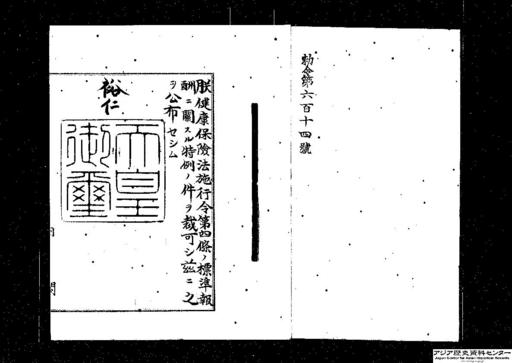 勅令第六百十四號
朕健康保險法施行令第四條ノ標準報
酬ニ關スル特例ノ件ヲ裁可シ茲ニ之
ヲ公布セシム
裕仁
天皇
御璽
アジア歴史資料センター
Japan Center for Asian Historical Records